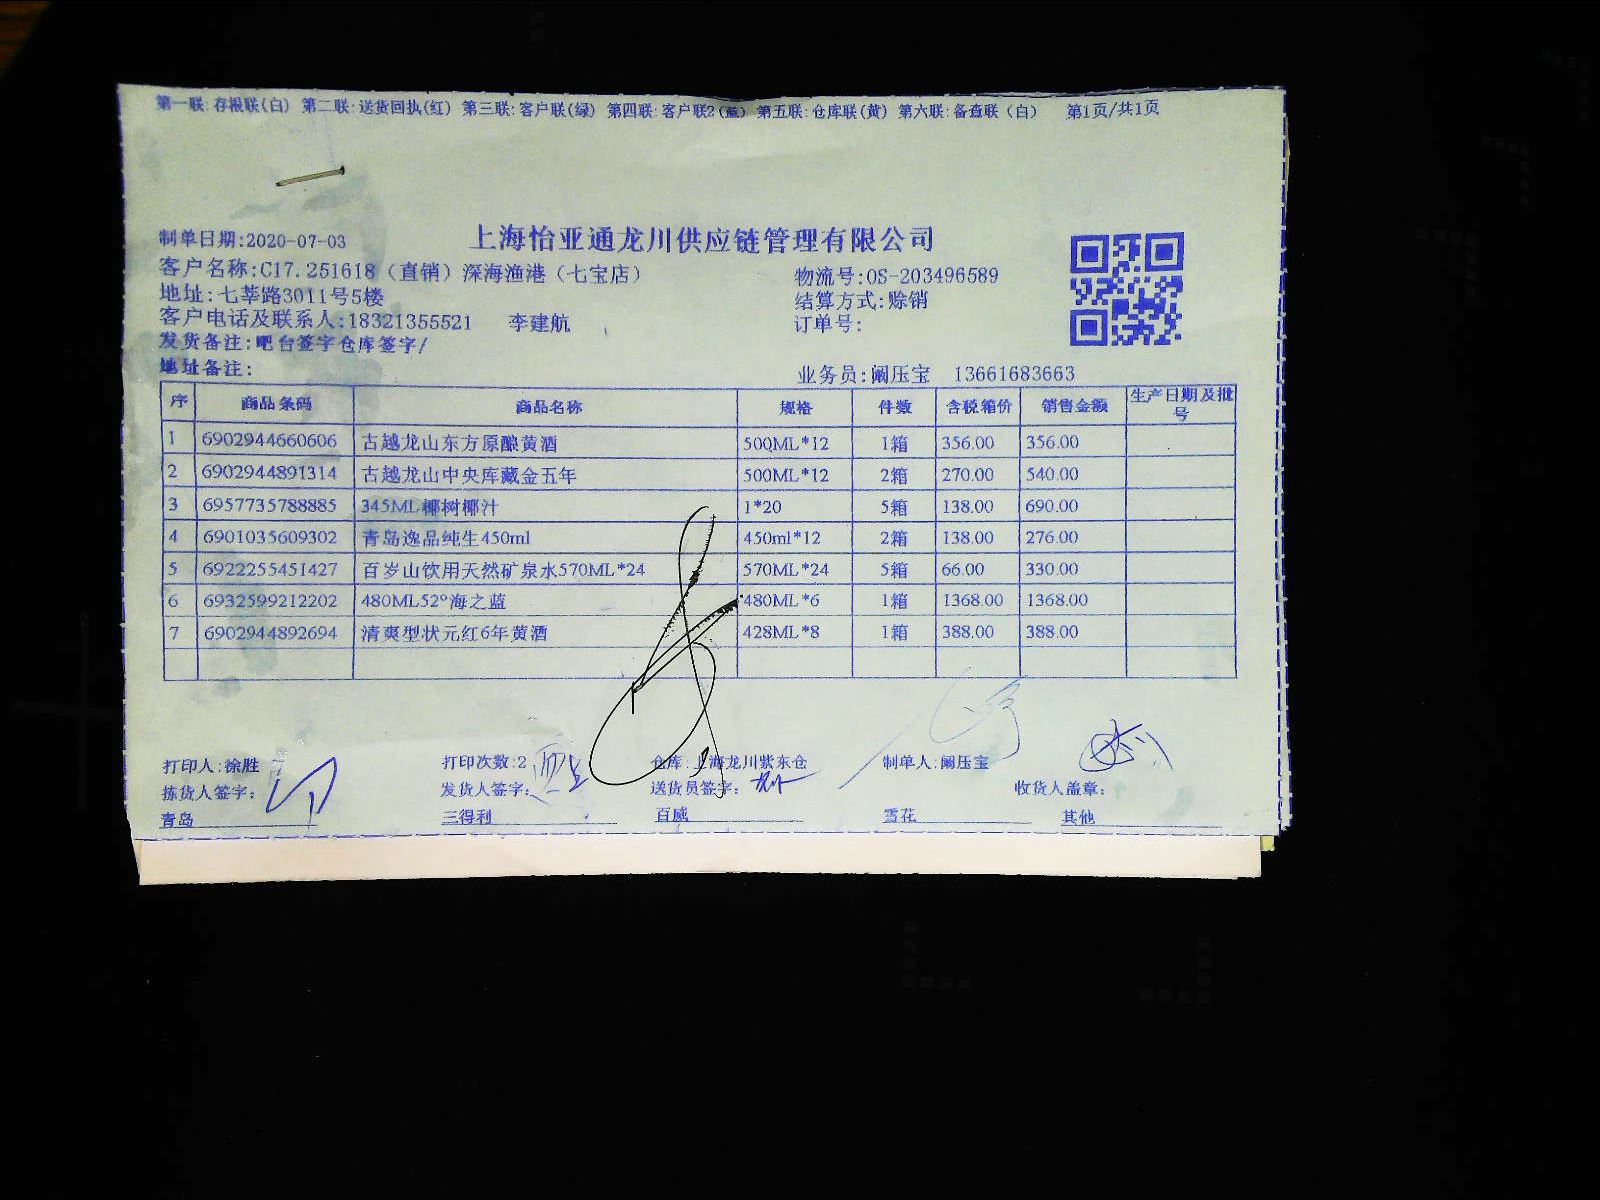 第一联:存根联(白) 第二联:送货回执(红) 第三联:客户联(绿) 第四联:客户联2(蓝) 第五联:仓库联(黄) 第六联:备查联(白) 第1页/共1页
上海怡亚通龙川供应链管理有限公司
制单日期:2020-07-03
客户名称:C17.251618（直销）深海渔港（七宝店） 物流号:OS-203496589
地址:七莘路3011号5楼 结算方式:赊销
客户电话及联系人:18321355521 李建航 订单号:
发货备注:吧台签字仓库签字/
地址备注: 业务员:阚压宝 13661683663
序 商品条码 商品名称 规格 件数 含税箱价 销售金额 生产日期及批号
1 6902944660606 古越龙山东方原酿黄酒 500ML*12 1箱 356.00 356.00
2 6902944891314 古越龙山中央库藏金五年 500ML*12 2箱 270.00 540.00
3 6957735788885 345ML椰树椰汁 1*20 5箱 138.00 690.00
4 6901035609302 青岛逸品纯生450ml 450ml*12 2箱 138.00 276.00
5 6922255451427 百岁山饮用天然矿泉水570ML*24 570ML*24 5箱 66.00 330.00
6 6932599212202 480ML52°海之蓝 480ML*6 1箱 1368.00 1368.00
7 6902944892694 清爽型状元红6年黄酒 428ML*8 1箱 388.00 388.00
打印人:徐胜 打印次数:2 仓库:上海龙川紫东仓 制单人:阚压宝
拣货人签字: 发货人签字: 送货员签字: 收货人盖章:
青岛 三得利 百威 雪花 其他